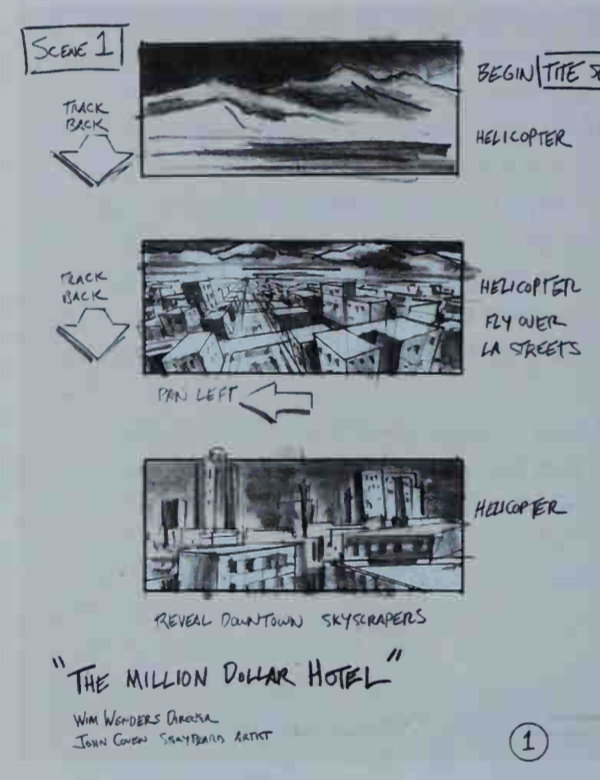 SCENE 1
BEGIN TITE
TRACK
BACK
HELICOPTER
TRACK
BACK
HELICOPTER
FLY OVER
LA STREETS
PAN LEFT
HELICOPTER
REVEAL DOWNTOWN SKYSCRAPERS
"THE MILLION DOLLAR HOTEL"
WIM WENDERS DIRECTOR
JOHN COVEN STORYBOARD ARTIST
1